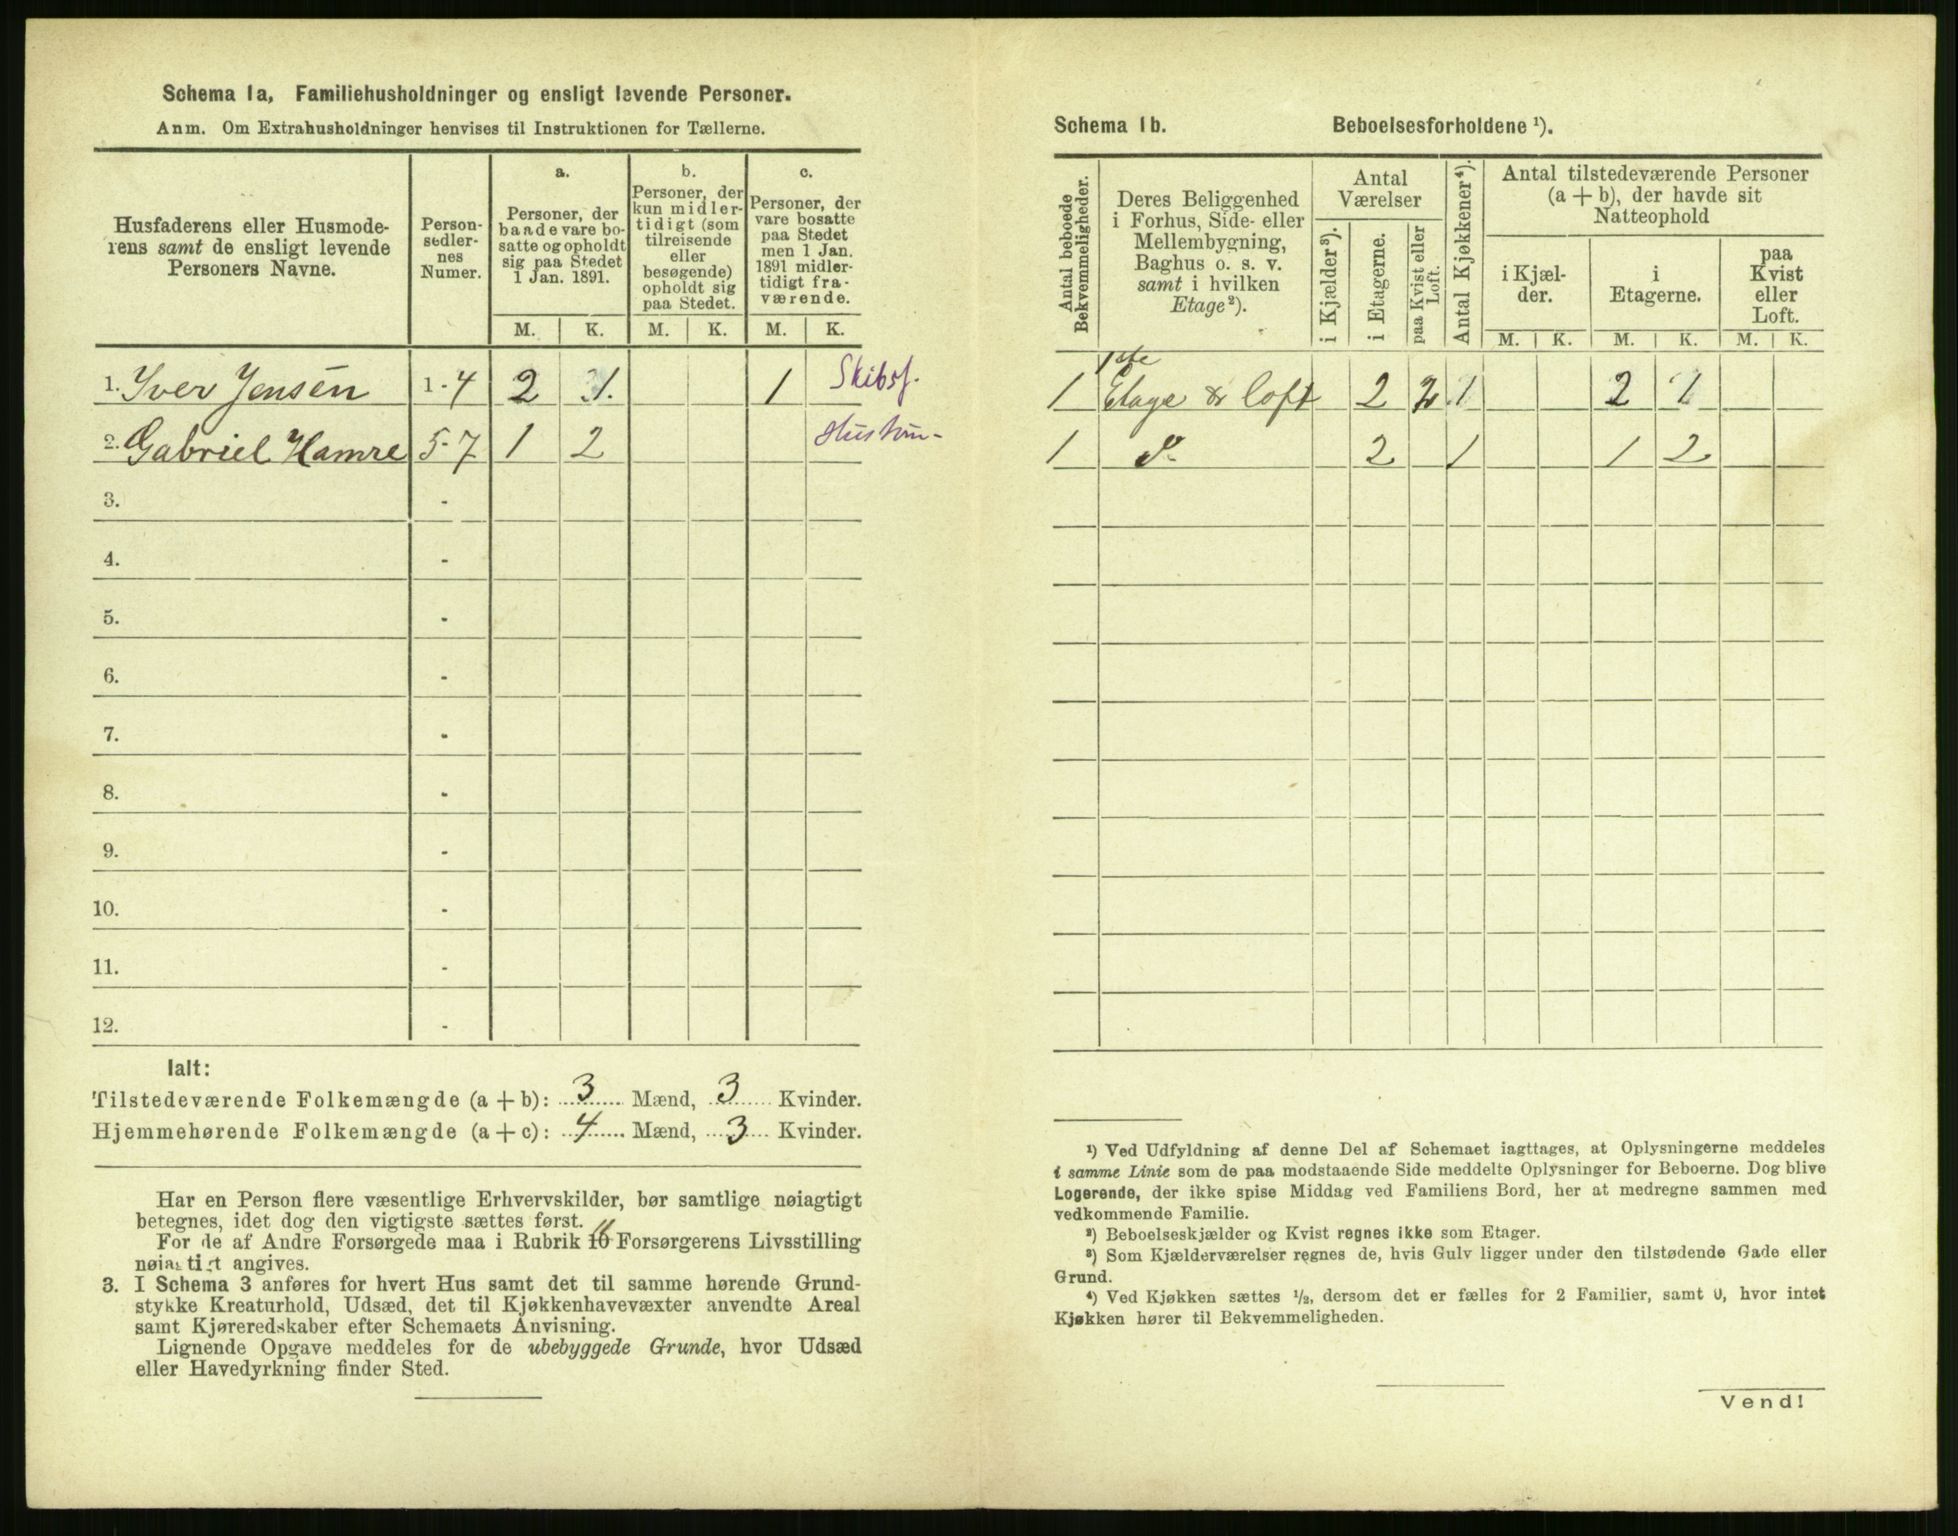 Schema 1a, Familiehusholdninger og ensligt levende Personer.
Anm. Om Extrahusholdninger henvises til Instruktionen for Tællerne.
Husfaderens eller Husmode-
rens samt de ensligt levende
Personers Navne.
Person-
sedler-
nes
Numer.
a.
Personer, der
baade vare bo-
satte og opholdt
sig paa Stedet
1 Jan. 1891.
b.
Personer, der
kun midler-
tidigt (som
tilreisende
eller
besøgende)
opholdt sig
paa Stedet.
c.
Personer, der
vare bosatte
paa Stedet
men 1 Jan.
1891 midler-
tidigt fra-
værende.
M. K. M. K. M. K.
1. Iver Jensen 1-4 2 1. 1 Skibsf.
2. Gabriel Hamre 5-7 1 2
3. -
4. -
5. -
6. -
7. -
8. -
9. -
10. -
11. -
12. -
Ialt:
Tilstedeværende Folkemængde (a + b): 3 Mænd, 3 Kvinder.
Hjemmehørende Folkemængde (a + c): 4 Mænd, 3 Kvinder.
Har en Person flere væsentlige Erhvervskilder, bør samtlige nøiagtigt
betegnes, idet dog den vigtigste sættes først.
For de af Andre Forsørgede maa i Rubrik 10 Forsørgerens Livsstilling
nøiagtigt angives.
3. I Schema 3 anføres for hvert Hus samt det til samme hørende Grund-
stykke Kreaturhold, Udsæd, det til Kjøkkenhavevæxter anvendte Areal
samt Kjøreredskaber efter Schemaets Anvisning.
Lignende Opgave meddeles for de ubebyggede Grunde, hvor Udsæd
eller Havedyrkning finder Sted.
Schema 1b. Beboelsesforholdene ¹).
Antal beboede
Bekvemmeligheder.
Deres Beliggenhed
i Forhus, Side- eller
Mellembygning,
Baghus o. s. v.
samt i hvilken
Etage²).
Antal
Værelser
i Kjælder³).
i Etagerne.
paa Kvist eller
Loft.
Antal Kjøkkener⁴).
Antal tilstedeværende Personer
(a + b), der havde sit
Natteophold
i Kjæl-
der.
i
Etagerne.
paa
Kvist
eller
Loft.
M. K. M. K. M. K.
1ste
1 Etage & loft 2 2 1 2 1
1 2 1 1 2
¹) Ved Udfyldning af denne Del af Schemaet iagttages, at Oplysningerne meddeles
i samme Linie som de paa modstaaende Side meddelte Oplysninger for Beboerne. Dog blive
Logerende, der ikke spise Middag ved Familiens Bord, her at medregne sammen med
vedkommende Familie.
²) Beboelseskjælder og Kvist regnes ikke som Etager.
³) Som Kjælderværelser regnes de, hvis Gulv ligger under den tilstødende Gade eller
Grund.
⁴) Ved Kjøkken sættes ½, dersom det er fælles for 2 Familier, samt 0, hvor intet
Kjøkken hører til Bekvemmeligheden.
Vend!